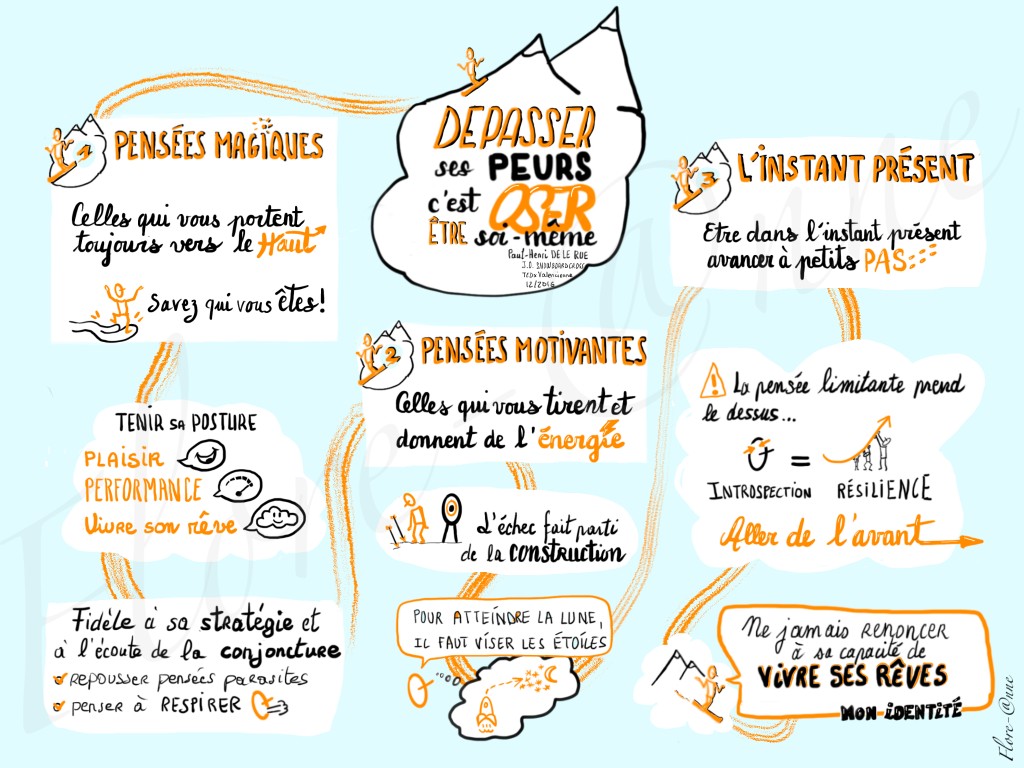 DEPASSER
ses PEURS
c'est OSER
ÊTRE soi-même
Paul-Henri DE LE RUE
J.O. SNOWBOARDCROSS
TEDx Valenciennes
12/2016
1 PENSÉES MAGIQUES
Celles qui vous portent
toujours vers le Haut
Savez qui vous êtes!
TENIR SA POSTURE
PLAISIR
PERFORMANCE
Vivre son rêve
Fidèle à sa stratégie et
à l'écoute de la conjoncture
repousser pensées parasites
penser à RESPIRER
2 PENSÉES MOTIVANTES
Celles qui vous tirent et
donnent de l'énergie
L'échec fait parti
de la construction
POUR ATTEINDRE LA LUNE,
IL FAUT VISER LES ÉTOILES
3 L'INSTANT PRÉSENT
Etre dans l'instant présent
avancer à petits PAS
La pensée limitante prend
le dessus...
=
INTROSPECTION RÉSILIENCE
Aller de l'avant
Ne jamais renoncer
à sa capacité de
VIVRE SES RÊVES
MON IDENTITÉ
Flore-@nne
Flore-@nne